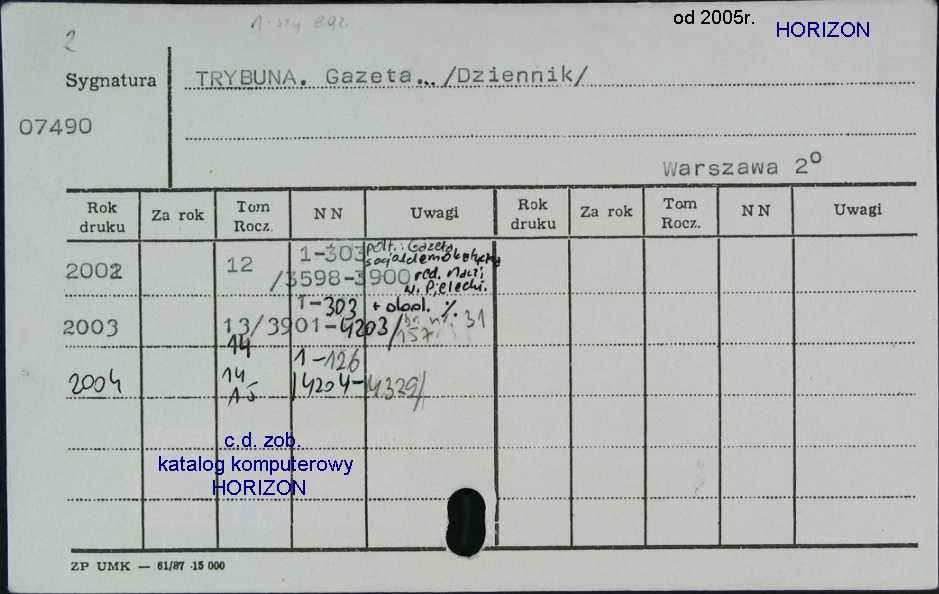 2
od 2005r.
HORIZON
Sygnatura
TRYBUNA. Gazeta... /Dziennik/
07490
Warszawa 2º
Rok druku Za rok Tom Rocz. NN Uwagi Rok druku Za rok Tom Rocz. NN Uwagi
2002 12 1-303
/3598-3900
Gazeta
socjaldemokratyczna
red. nacz.
2003 1-303
13/3901-4203/ 157 31
14
1-126
2004 14 /4204-4329/
15
c.d. zob.
katalog komputerowy
HORIZON
ZP UMK — 61/87 ·15 000